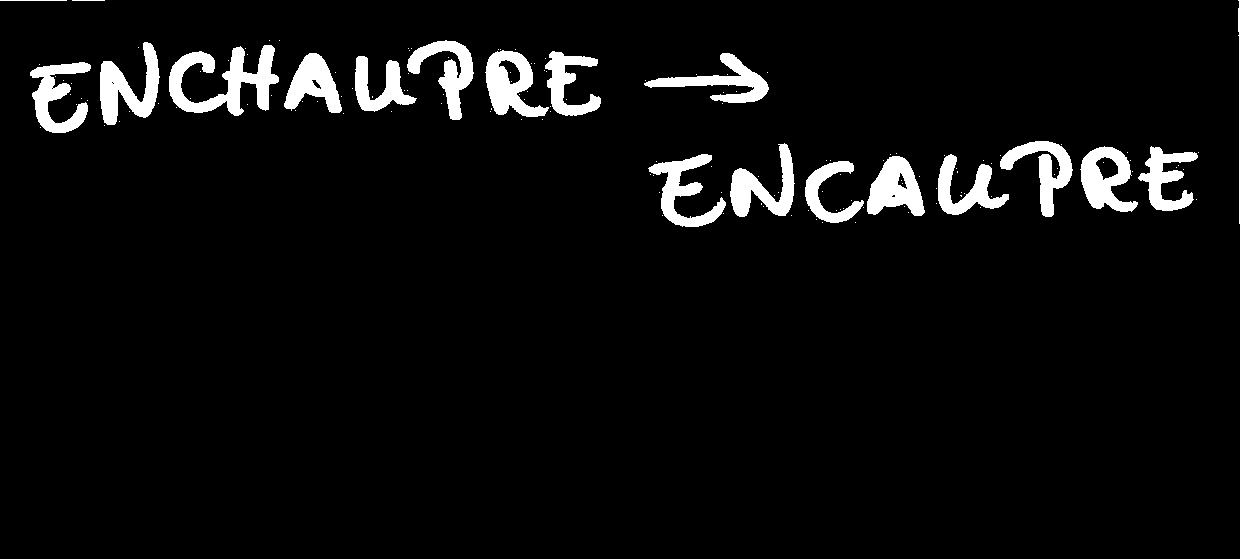 ENCHAUPRE →
ENCAUPRE